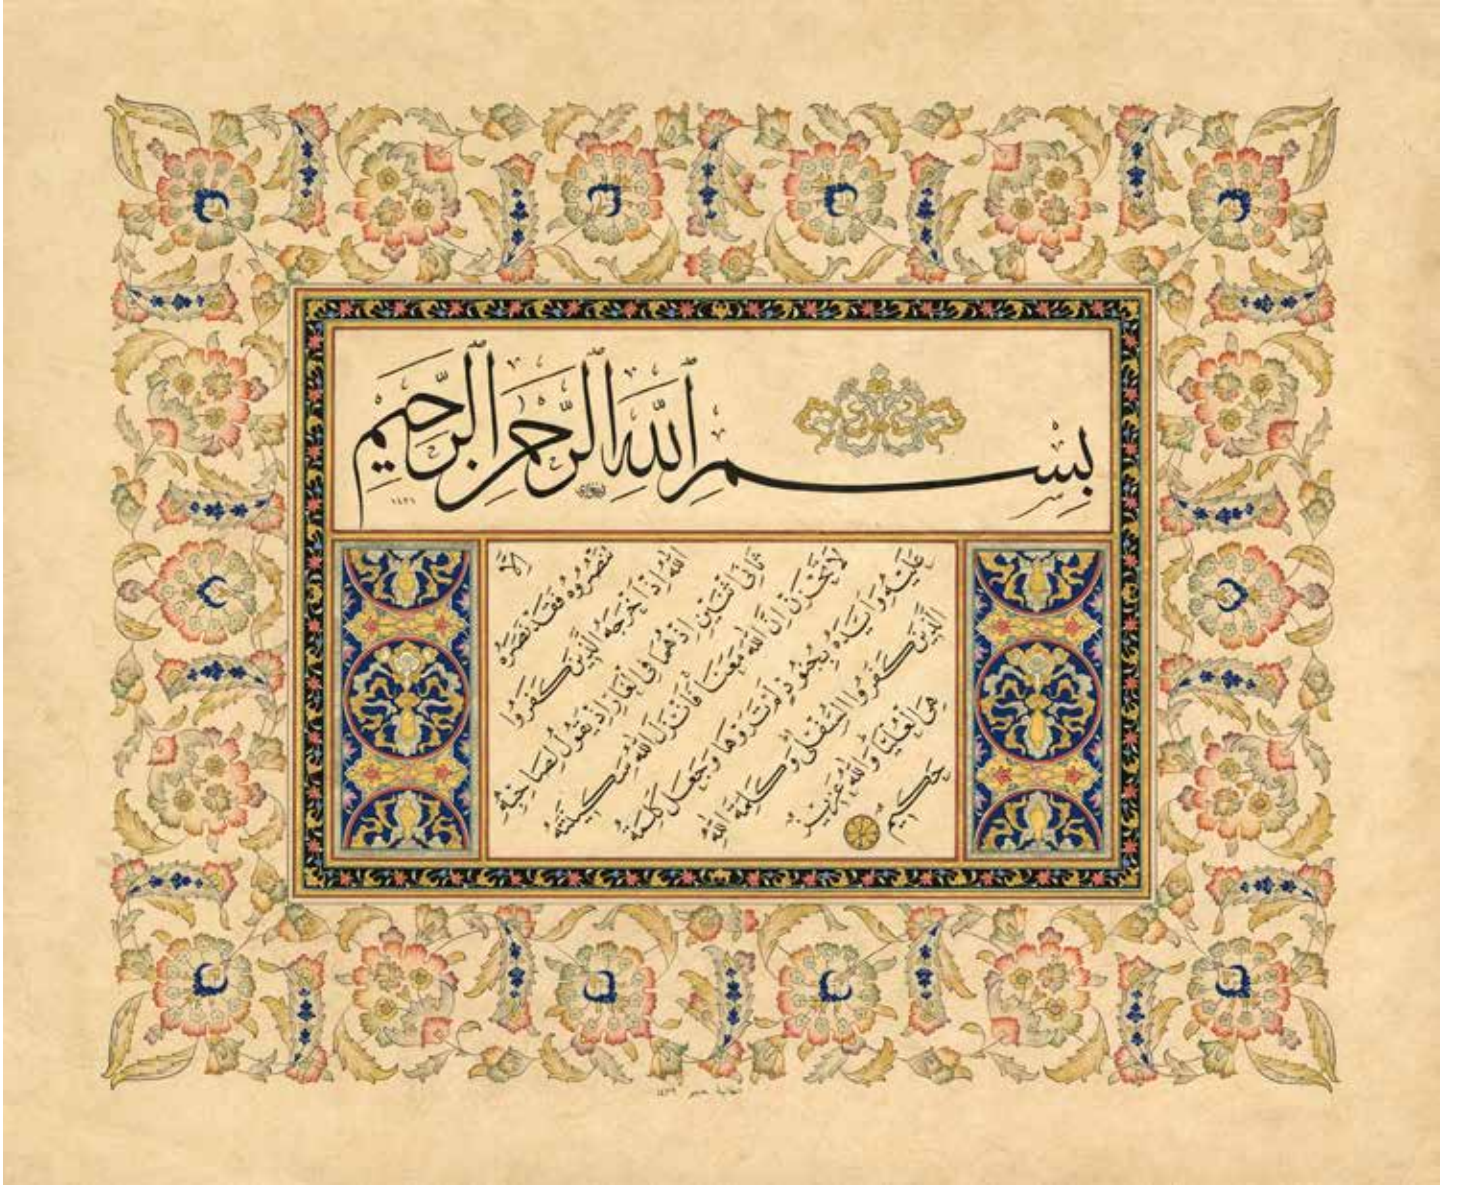 بِسْمِ اللّٰهِ الرَّحْمٰنِ الرَّحِيمِ
اِلَّا
تَنْصُرُوهُ فَقَدْ نَصَرَهُ
اللّٰهُ اِذْ اَخْرَجَهُ الَّذِينَ كَفَرُوا
ثَانِيَ اثْنَيْنِ اِذْ هُمَا فِي الْغَارِ اِذْ يَقُولُ لِصَاحِبِهِ
لَا تَحْزَنْ اِنَّ اللّٰهَ مَعَنَا فَاَنْزَلَ اللّٰهُ سَكِينَتَهُ
عَلَيْهِ وَاَيَّدَهُ بِجُنُودٍ لَمْ تَرَوْهَا وَجَعَلَ كَلِمَةَ
الَّذِينَ كَفَرُوا السُّفْلٰى وَكَلِمَةُ اللّٰهِ
هِيَ الْعُلْيَا وَاللّٰهُ عَزِيزٌ
حَكِيمٌ